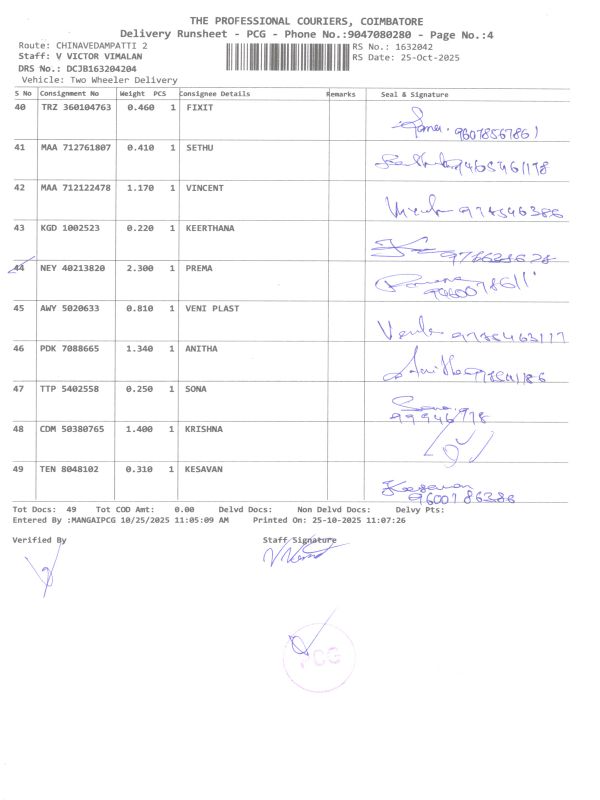 THE PROFESSIONAL COURIERS, COIMBATORE
Delivery Runsheet - PCG - Phone No.:9047080280 - Page No.:4
Route: CHINAVEDAMPATTI 2 RS No.: 1632042
Staff: V VICTOR VIMALAN RS Date: 25-Oct-2025
DRS No.: DCJB163204204
Vehicle: Two Wheeler Delivery
S No Consignment No Weight PCS Consignee Details Remarks Seal & Signature
40 TRZ 360104763 0.460 1 FIXIT
41 MAA 712761807 0.410 1 SETHU
42 MAA 712122478 1.170 1 VINCENT
43 KGD 1002523 0.220 1 KEERTHANA
44 NEY 40213820 2.300 1 PREMA
45 AWY 5020633 0.810 1 VENI PLAST
46 PDK 7088665 1.340 1 ANITHA
47 TTP 5402558 0.250 1 SONA
48 CDM 50380765 1.400 1 KRISHNA
49 TEN 8048102 0.310 1 KESAVAN Kesavan
Tot Docs: 49 Tot COD Amt: 0.00 Delvd Docs: Non Delvd Docs: Delvy Pts:
Entered By :MANGAIPCG 10/25/2025 11:05:09 AM Printed On: 25-10-2025 11:07:26
Verified By Staff Signature
PCG